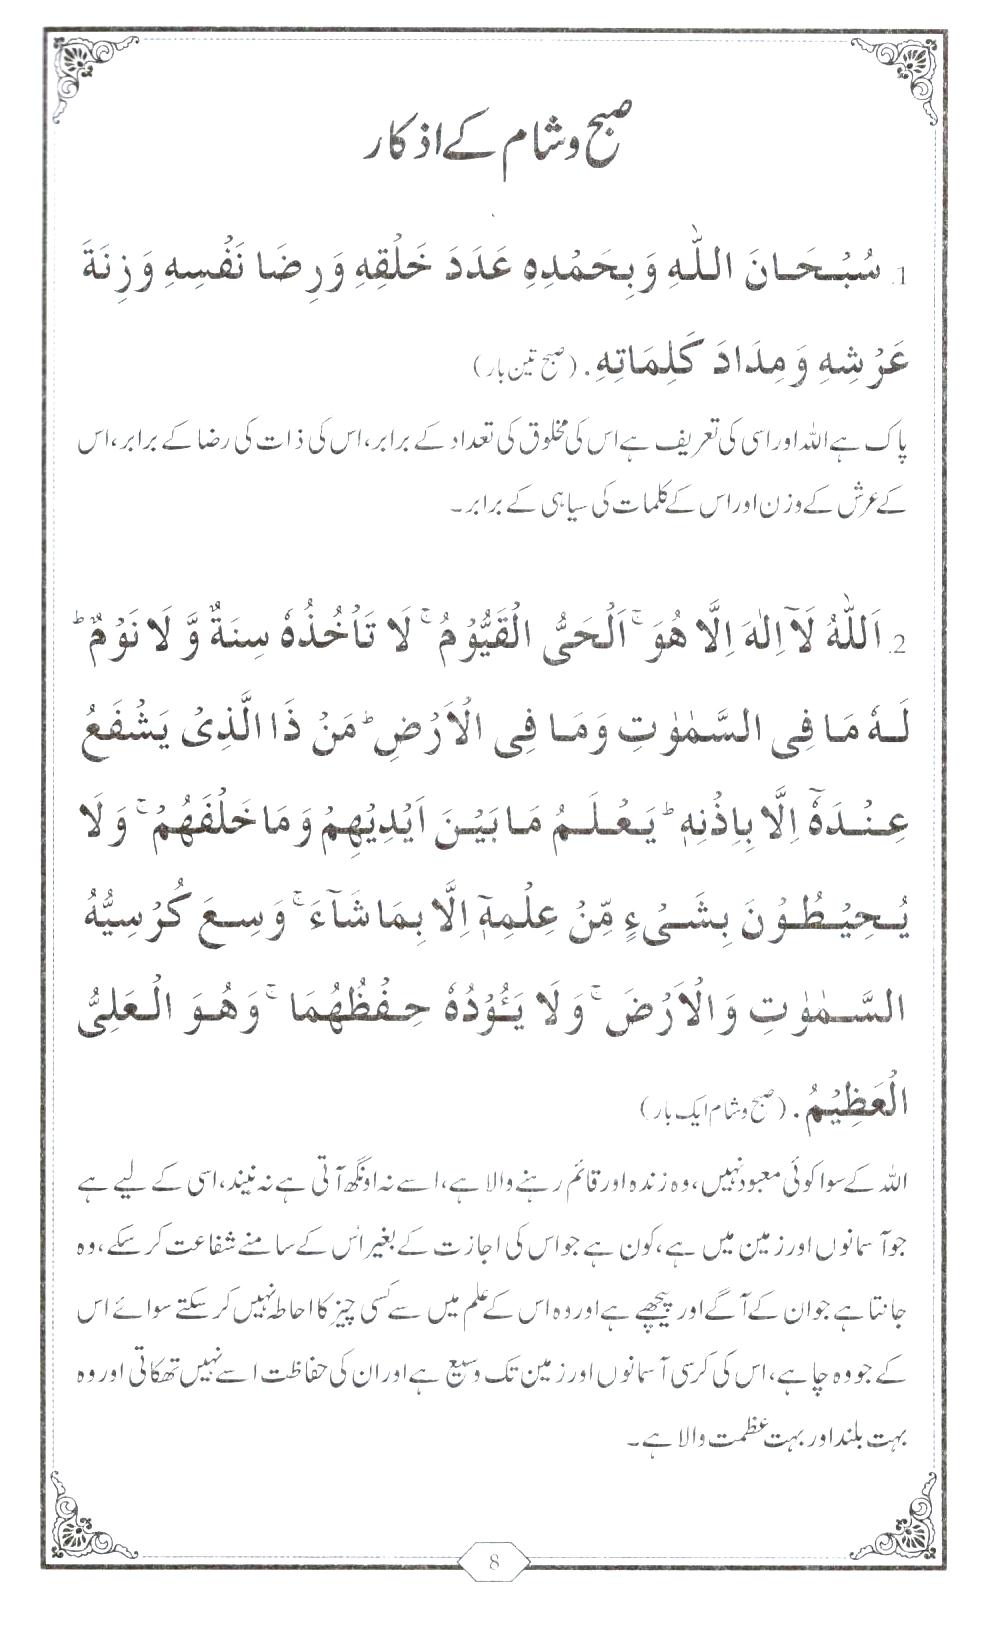 صبح و شام کے اذکار
1. سُبْحَانَ اللّٰهِ وَبِحَمْدِهِ عَدَدَ خَلْقِهِ وَرِضَا نَفْسِهِ وَزِنَةَ
عَرْشِهِ وَمِدَادَ كَلِمَاتِهِ. (صبح تین بار)
پاک ہے اللہ اور اسی کی تعریف ہے اس کی مخلوق کی تعداد کے برابر، اس کی ذات کی رضا کے برابر، اس
کے عرش کے وزن اور اس کے کلمات کی سیاہی کے برابر۔
2. اَللّٰهُ لَآ اِلٰهَ اِلَّا هُوَ ۚ اَلْحَیُّ الْقَیُّوْمُ ۚ لَا تَاْخُذُهٗ سِنَةٌ وَّ لَا نَوْمٌ ؕ
لَهٗ مَا فِی السَّمٰوٰتِ وَمَا فِی الْاَرْضِ ؕ مَنْ ذَا الَّذِیْ یَشْفَعُ
عِنْدَهٗٓ اِلَّا بِاِذْنِهٖ ؕ یَعْلَمُ مَا بَیْنَ اَیْدِیْهِمْ وَمَا خَلْفَهُمْ ۚ وَلَا
یُحِیْطُوْنَ بِشَیْءٍ مِّنْ عِلْمِهٖٓ اِلَّا بِمَا شَآءَ ۚ وَسِعَ کُرْسِیُّهُ
السَّمٰوٰتِ وَالْاَرْضَ ۚ وَلَا یَـُٔوْدُهٗ حِفْظُهُمَا ۚ وَهُوَ الْعَلِیُّ
الْعَظِیْمُ. (صبح و شام ایک بار)
اللہ کے سوا کوئی معبود نہیں، وہ زندہ اور قائم رہنے والا ہے، اسے نہ اونگھ آتی ہے نہ نیند، اسی کے لیے ہے
جو آسمانوں اور زمین میں ہے، کون ہے جو اس کی اجازت کے بغیر اُس کے سامنے شفاعت کر سکے، وہ
جانتا ہے جو ان کے آگے اور پیچھے ہے اور وہ اس کے علم میں سے کسی چیز کا احاطہ نہیں کر سکتے سوائے اس
کے جو وہ چاہے، اس کی کرسی آسمانوں اور زمین تک وسیع ہے اور ان کی حفاظت اسے نہیں تھکاتی اور وہ
بہت بلند اور بہت عظمت والا ہے۔
8